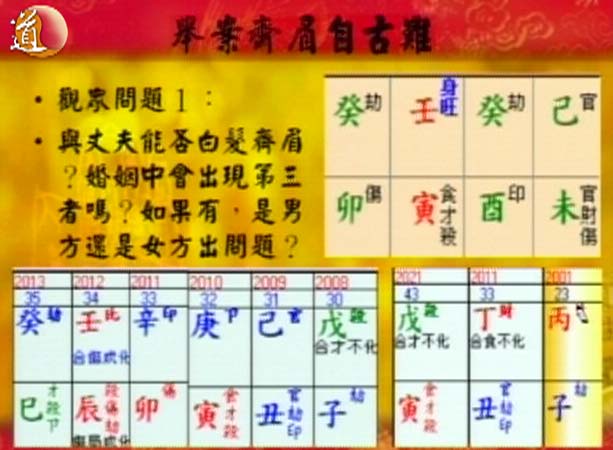 道
舉案齊眉自古難
• 觀眾問題1：
• 與丈夫能否白髮齊眉
？婚姻中會出現第三
者嗎？如果有，是男
方還是女方出問題？
癸 劫 壬 身旺 癸 劫 己 官
卯 傷 寅 食才殺 酉 印 未 官財傷
2013 2012 2011 2010 2009 2008
35 34 33 32 31 30
癸 劫 壬 比 辛 印 庚 卩 己 官 戊 殺
合傷成化 合才不化
巳 才殺卩 辰 殺傷劫 卯 傷 寅 食才殺 丑 官劫印 子 劫
傷局成化
2021 2011 2001
43 33 23
戊 殺 丁 財 丙
合才不化 合食不化
寅 食才殺 丑 官劫印 子 劫